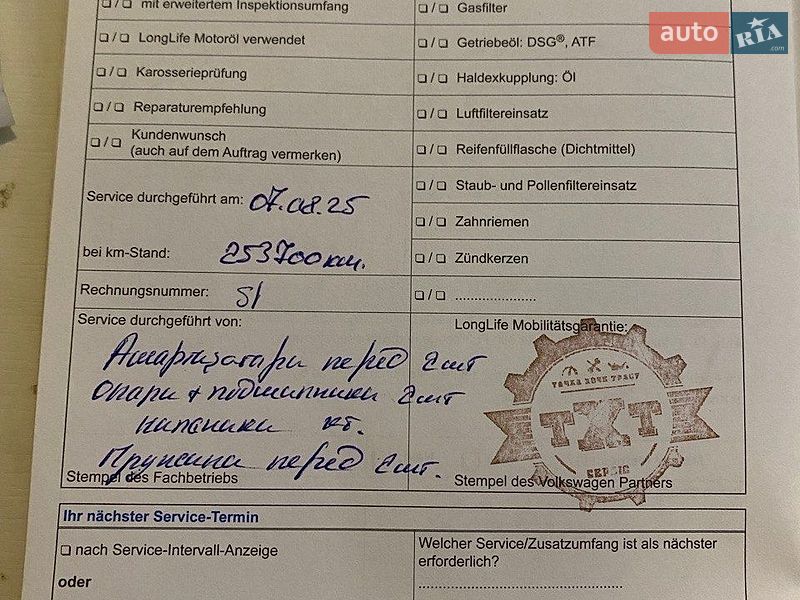 ❏ / ❏ mit erweitertem Inspektionsumfang
❏ / ❏ LongLife Motoröl verwendet
❏ / ❏ Karosserieprüfung
❏ / ❏ Reparaturempfehlung
❏ / ❏ Kundenwunsch
(auch auf dem Auftrag vermerken)
Service durchgeführt am: 07.08.25
bei km-Stand: 253700км.
Rechnungsnummer:
Service durchgeführt von:
Амортизатори перед 2шт
Опори + подшипники 2шт
кт.
Пружина перед 2шт.
Stempel des Fachbetriebs
❏ / ❏ Gasfilter
❏ / ❏ Getriebeöl: DSG®, ATF
❏ / ❏ Haldexkupplung: Öl
❏ / ❏ Luftfiltereinsatz
❏ / ❏ Reifenfüllflasche (Dichtmittel)
❏ / ❏ Staub- und Pollenfiltereinsatz
❏ / ❏ Zahnriemen
❏ / ❏ Zündkerzen
❏ / ❏ .....................
LongLife Mobilitätsgarantie:
ТАЧКА ХОЧЕ ТРАСУ
ТХТ
СЕРВІС
Stempel des Volkswagen Partners
Ihr nächster Service-Termin
❏ nach Service-Intervall-Anzeige
oder
Welcher Service/Zusatzumfang ist als nächster
erforderlich?
auto RIA .com